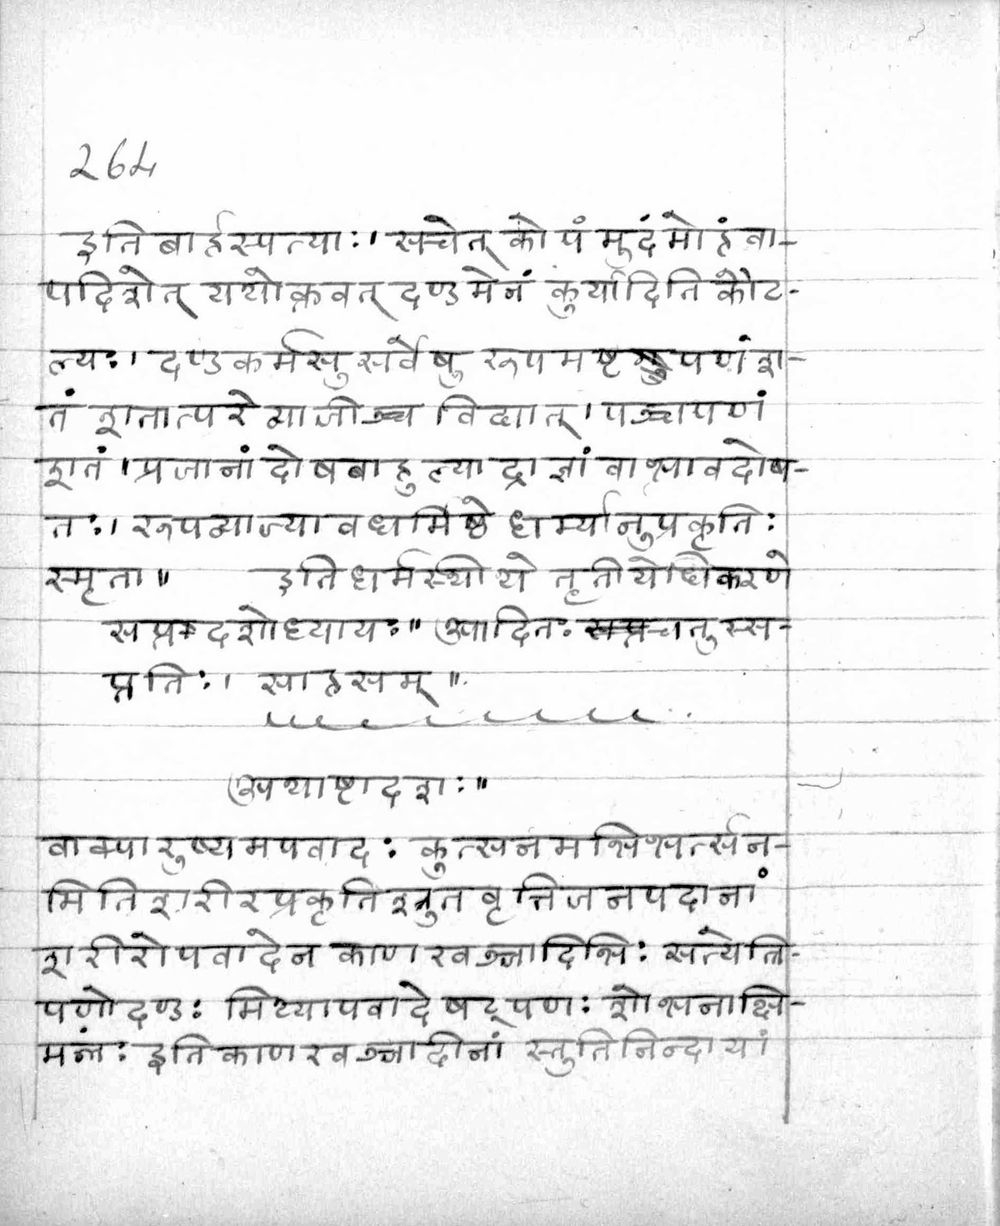 264
इति बार्हस्पत्याः। सचेत् कोपं मुदं मोहं वा-
पदिशेत् यथोक्तवत् दण्डमेनं कुर्यादिति कौट-
ल्यः। दण्डकर्मसु सर्वेषु रूपमष्टपणं श-
तं शतात्परे व्याजीञ्च विद्यात्। पञ्चपणं
शतं। प्रजानां दोषबाहुल्याद्राज्ञां वा भावदोष-
तः। रूपव्याज्यावधर्मिष्ठे धर्म्यानुप्रकृतिः
स्मृता॥ इति धर्मस्थीये तृतीयेधिकरणे
सप्तदशोध्यायः॥ आदितः चतुस्स-
प्ततिः। साहसम्॥
अथाष्टादशः॥
वाक्पारुष्यमपवादः कुत्सनमभिभर्त्सन-
मिति शरीरप्रकृतिश्रुतवृत्तिजनपदानां
शरीरोपवादेन काणखञ्जादिभिः सत्येत्रि-
पणोदण्डः मिथ्यापवादे षट्पणः शोभनाक्षि-
मन्तः इति काणखञ्जादीनां स्तुतिनिन्दायां